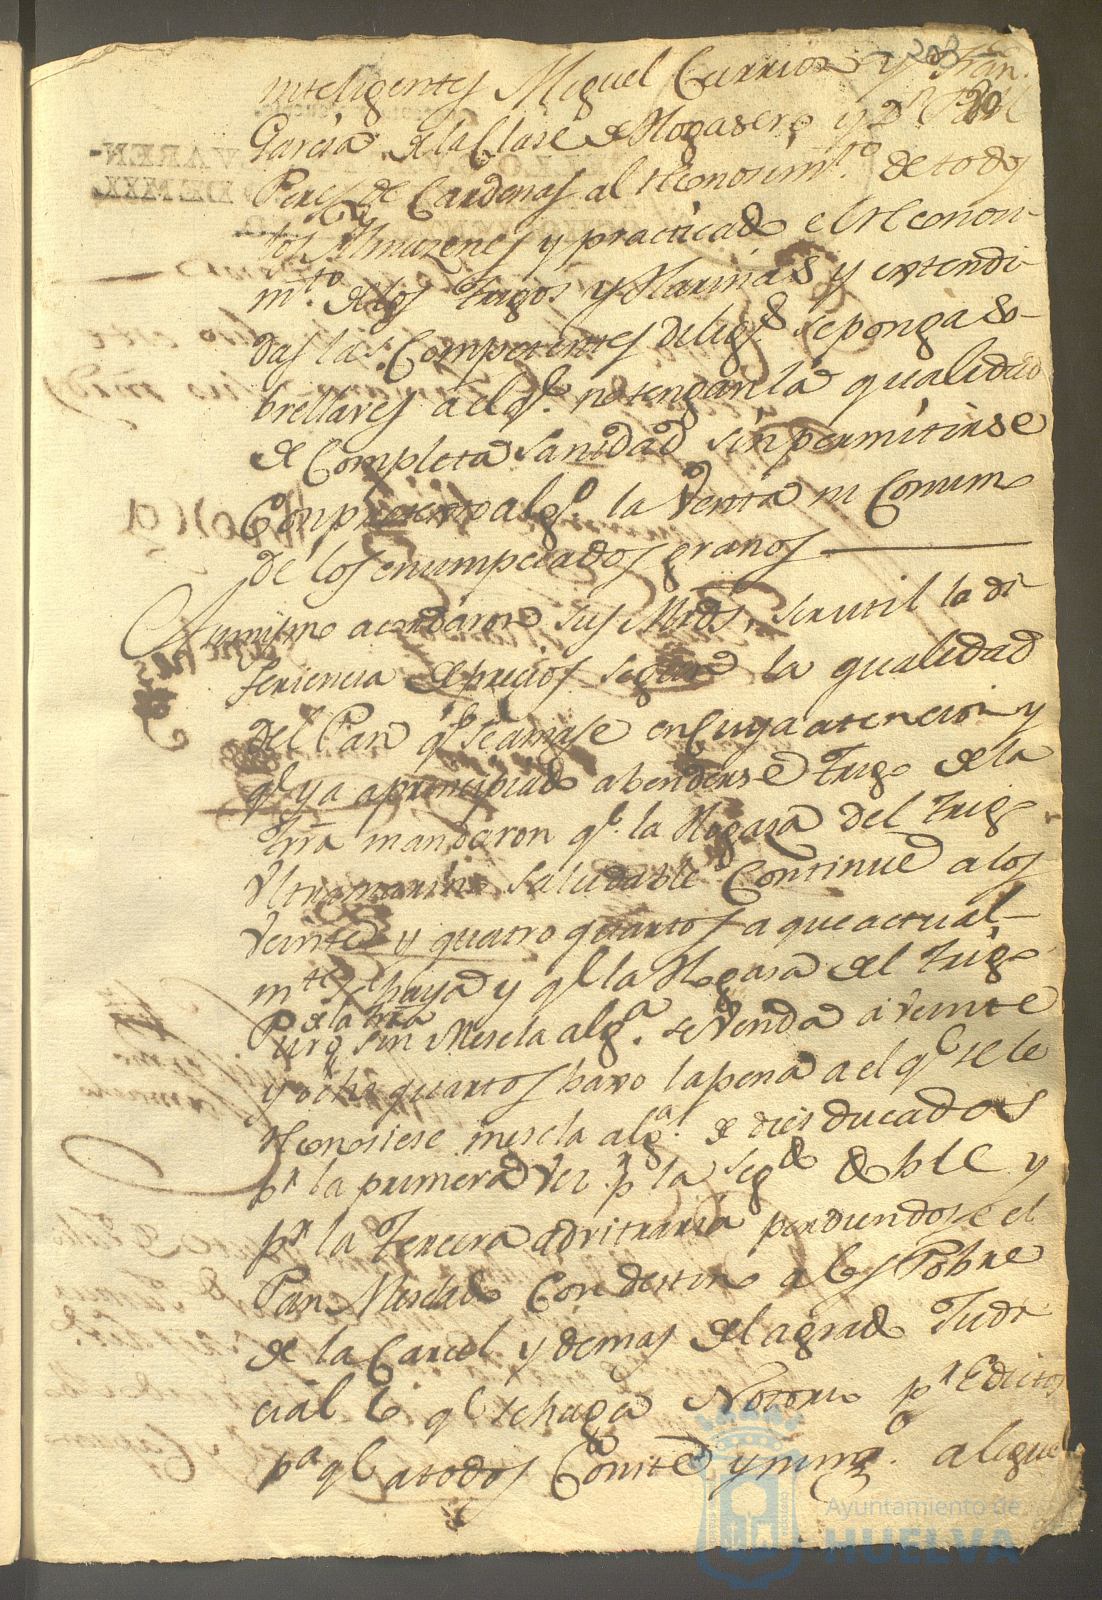 203
20
inteligentes Miguel Carrion y Fran.
Garcia de la Clase de Hogasero, y Dn
Peres de Cardenas al reconosimto. de todos
los Almazenes y practicado el reconosi-
mto. de los Trigos y Harinas y extendi-
das las Competentes diligs. se ponga so-
brellaves a el qe. no tengan la qualidad
de Completa Sanidad sin permitirse
Con pretexto algo. la Venta ni Consumo
de los enumpeciados granos
Asimismo acordaron sus Mrds. ser util la di-
feriencia de precios segun la qualidad
del Pan qe. se amase en Cuya atencion y
qe. ya a principiado a bendense Trigo de la
trra mandaron qe. la Hogasa del Trigo
Ultramarino Saludable Continue a los
veinte y quatro quartos a que actual-
mte. se haya y qe. la Hogasa del Trigo
de la trra
Puro sin Mescla alga. se Venda a veinte
y ocho quartos baxo la pena a el qe. se le
reconosiese mescla alga. de dies ducados
pr. la primera vez pr. la segda doble y
pr. la Tercera advitraria perdiendose el
Pan Mesclado Con destino a los Pobre
de la Carcel y demas del agrado Judi
cial lo qe. se haga Notorio pr. Edictos
pa. qe. a todos Conste y ningo. alegue
Ayuntamiento de
HUELVA